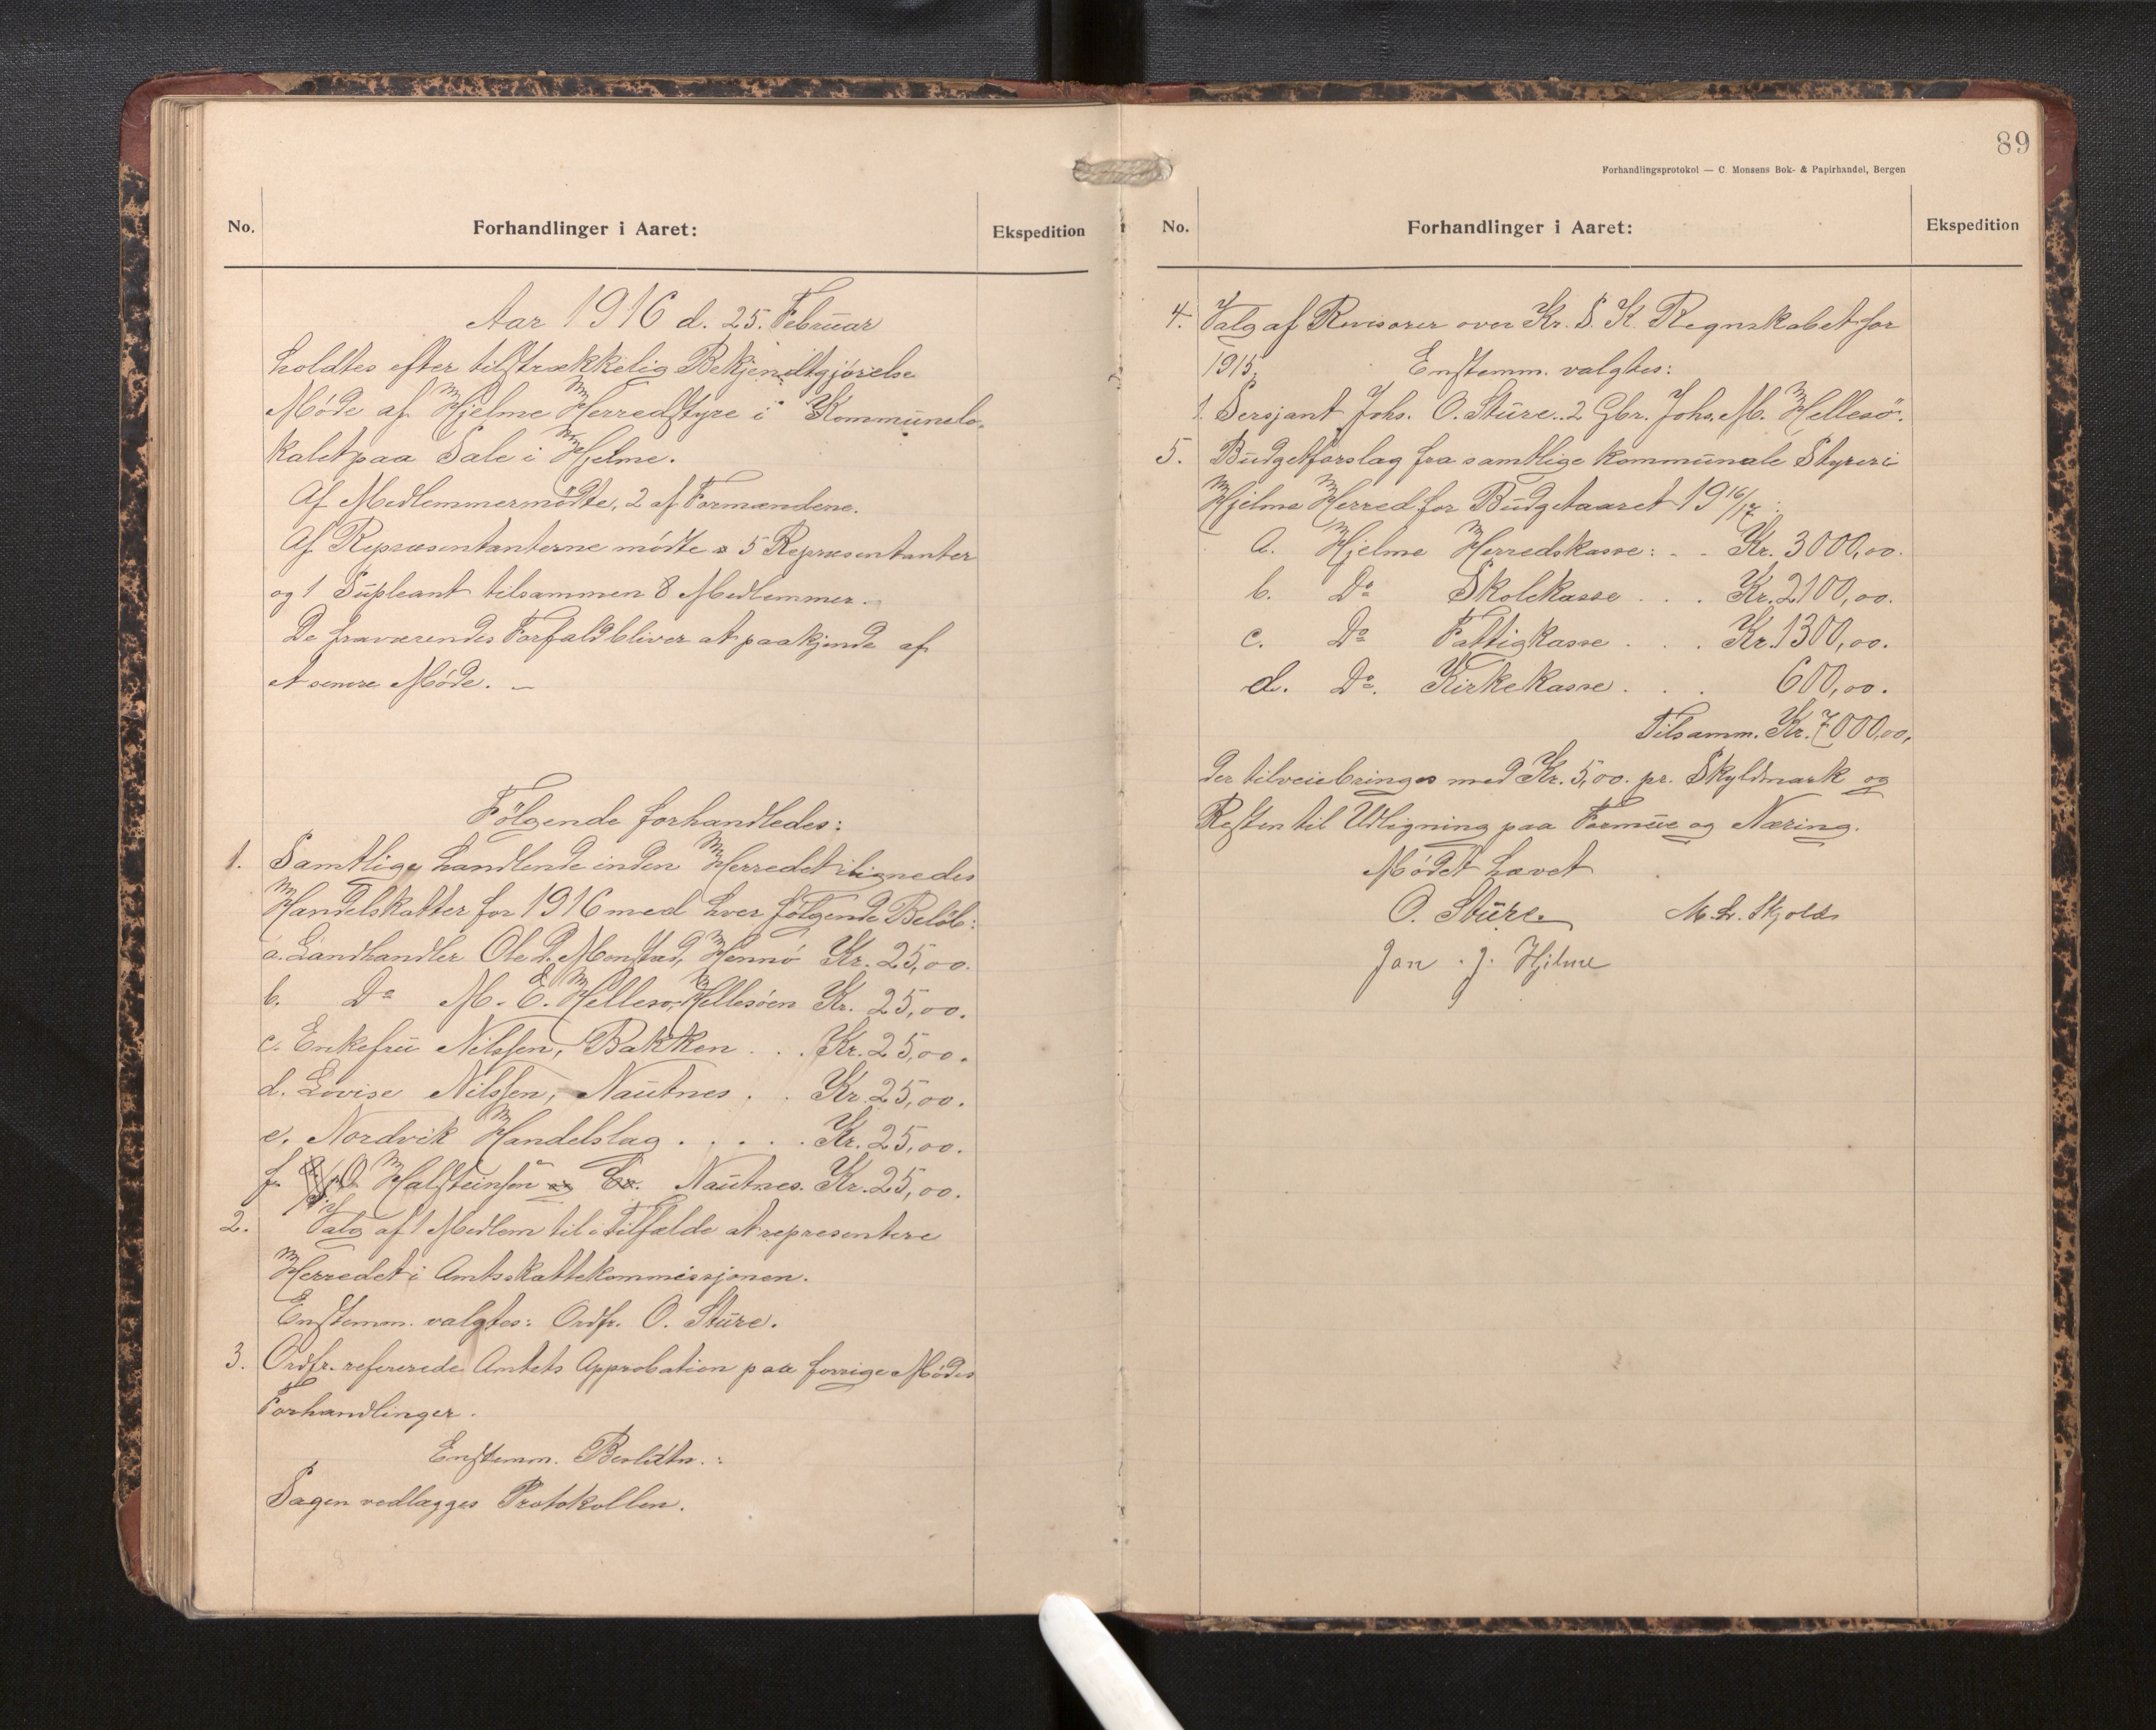 No.
Forhandlinger i Aaret:
Ekspedition
Aar 1916 d. 25. Februar
holdtes efter tilstrækkelig Bekjendtgjørelse
Møde af Hjelme Herredstyre i Kommunelo-
kalet paa Sale i Hjelme.
Af Medlemmer mødte, 2 af Formændene.
Af Repræsentanterne mødte 5 Repræsentanter
og 1 Supleant tilsammen 8 Medlemmer.
De fraværendes Forfald bliver at paakjende af
et senere Møde. –
Følgende forhandledes:
1. Samtlige handlende inden Herredet ilignedes
Handelskatter for 1916 med hver følgende Beløb:
a. Landhandler Ole D. Monstad, Hennø Kr. 25,00.
b. Do M. E. Hellesø, Hellesøen Kr. 25,00.
c. Enkefru Nilssen, Bakken . . . Kr. 25,00.
d. Lovise Nilssen, Nautnes . . Kr. 25,00.
e. Nordvik Handelslag . . . . . Kr. 25,00.
f. Halsteinsen Nautnes. Kr. 25,00.
2. Valg af 1 Medlem til i Tilfælde at representere
Herredet i Amtsskattekommissjonen.
Enstemm. valgtes: Ordfr. O. Sture.
3. Ordfr. refererede Amtets Approbation paa forrige Mødes
Forhandlinger.
Enstemm. Besldtn.:
Sagen vedlægges Protokollen.
89
Forhandlingsprotokol — C. Monsens Bok- & Papirhandel, Bergen
No.
Forhandlinger i Aaret:
Ekspedition
4. Valg af Revisorer over Kr. S. K. Regnskabet for
1915. Enstemm. valgtes:
1. Sersjant Johs. O. Sture.. 2 Gbr. Johs. M. Hellesö.
5. Budgetforslag fra samtlige kommunale Styrer i
Hjelme Herred for Budgetaaret 1916/17:
a. Hjelme Herredskasse: - - Kr. 3000,00.
b. Do Skolekasse . . . Kr. 2100,00.
c. Do Fattigkasse . . . Kr. 1300,00.
d. Do. Kirkekasse . . . 600,00.
Tilsamm. Kr. 7000,00,
der tilveiebringes med Kr. 5,00. pr. Skyldmark og
Resten til Udligning paa Formue og Næring.
Mødet hævet
O. Sture. M. L. Skjold
Jan . J. Hjelme